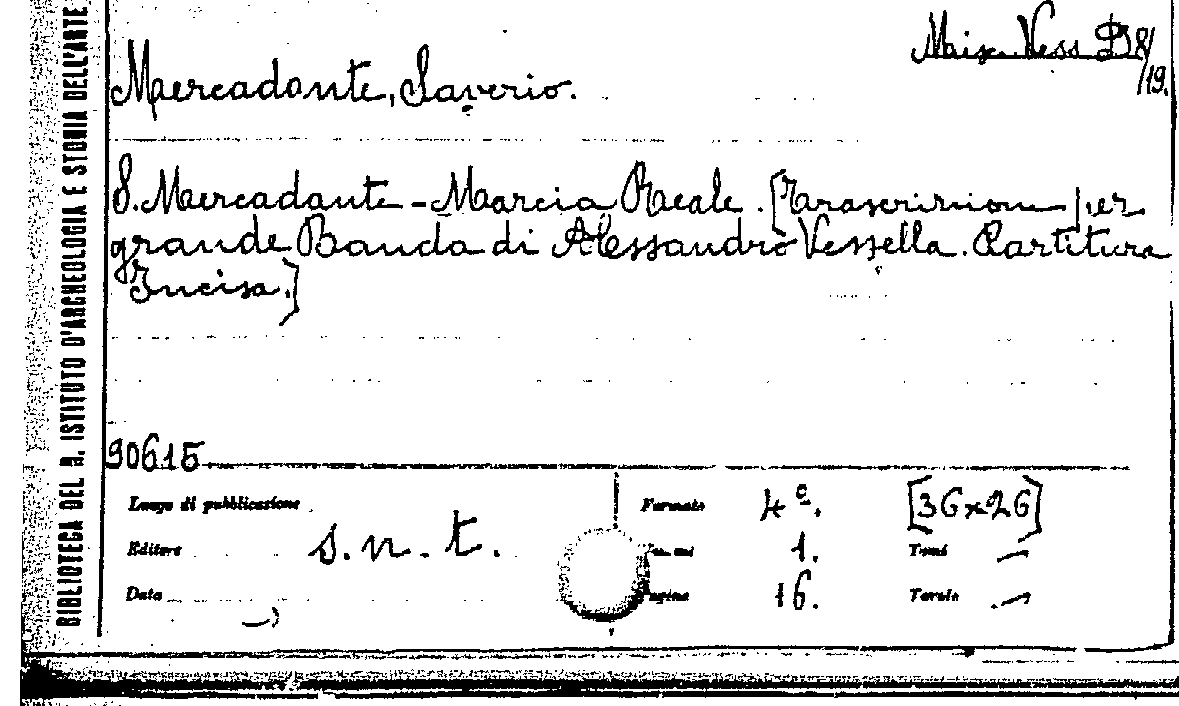 BIBLIOTECA DEL R. ISTITUTO D'ARCHEOLOGIA E STORIA DELL'ARTE
Vess B 8/19.
Mercadante, Saverio.
S. Mercadante - Marcia Reale. [Trascrizione per
grande Banda di Alessandro Vessella. Partitura
Incisa.]
90615
Luogo di pubblicazione
Formato 4º. [36x26]
Editore s.n.t. 1. Tomi —
Data Pagine 16. Tavole —